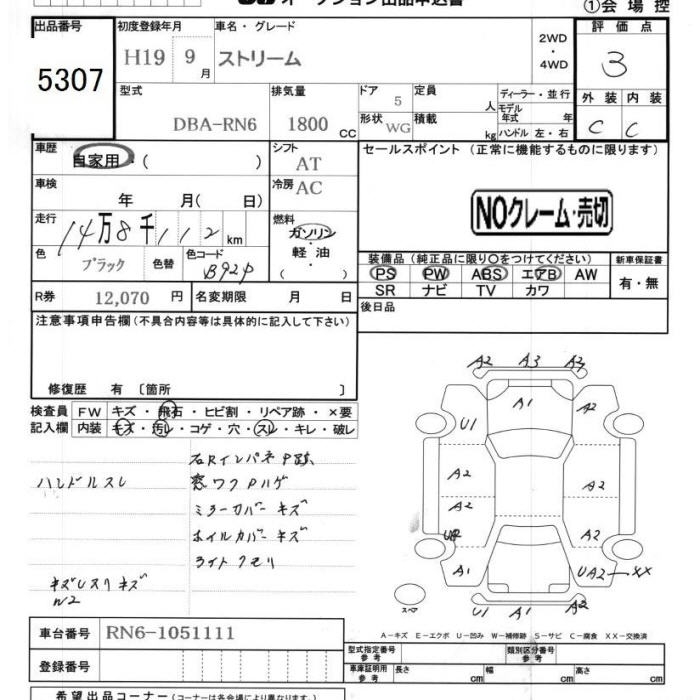 オークション出品申込書 ①会場控
出品番号 初度登録年月 車名・グレード 2WD・4WD 評価点
5307 H19 9月 ストリーム 3
型式 排気量 ドア 5 定員 人 ディーラー・並行 外装 内装
DBA-RN6 1800 CC 形状 WG 積載 kg モデル年式 年 ハンドル 左・右 C C
車歴 自家用・( ) シフト AT セールスポイント (正常に機能するものに限ります)
車検 年 月( 日) 冷房 AC
NOクレーム・売切
走行 14万8千112km 燃料 ガソリン・軽油( )
色 ブラック 色替 色コード B92P
装備品 (純正品に限り○をつけてください) 新車保証書
PS PW ABS エアB AW 有・無
SR ナビ TV カワ
R券 12,070 円 名変期限 月 日 後日品
注意事項申告欄 (不具合内容等は具体的に記入して下さい)
修復歴 有〔箇所 〕
検査員記入欄 FW キズ・飛石・ヒビ割・リペア跡・×要
内装 キズ・汚レ・コゲ・穴・スレ・キレ・破レ
ハンドルスレ
石Rインパネ P跡
窓ワク Pハゲ
ミラーカバー キズ
ホイルカバー キズ
ライト クモリ
W2
A2 A3 A2
U1 A1 A2
A2 A2
A2
A2
A1 UA2 XX
U1 A1 A2
スペア
A-キズ E-エクボ U-凹み W-補修跡 S-サビ C-腐食 XX-交換済
車台番号 RN6-1051111
登録番号
型式指定番号 参考 類別区分番号 参考
車庫証明用 参考 長さ cm 幅 cm 高さ cm
希望出品コーナー (コーナーは各会場により異なります。)